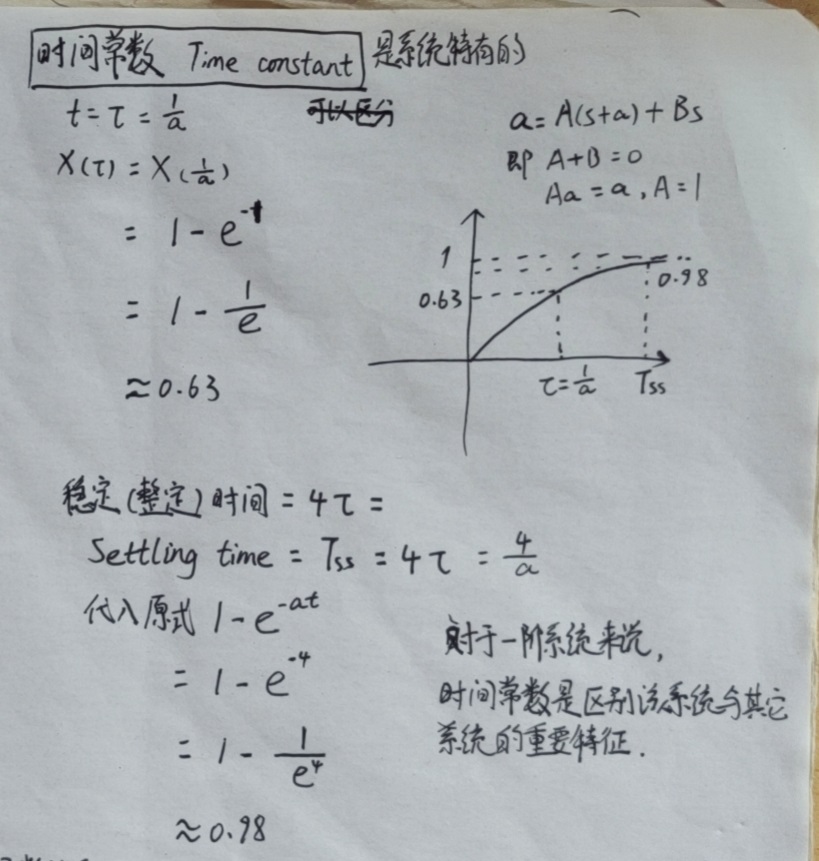 时间常数 Time constant 是系统特有的
t = τ = 1/a
可以区分
X(τ) = X(1/a)
= 1 - e^-1
= 1 - 1/e
≈ 0.63
a = A(s+a) + Bs
即 A+B = 0
Aa = a , A = 1
1
0.98
0.63
τ = 1/a
Tss
稳定(整定)时间 = 4τ =
Settling time = Tss = 4τ = 4/a
代入原式 1 - e^-at
= 1 - e^-4
= 1 - 1/e^4
≈ 0.98
对于一阶系统来说,
时间常数是区别该系统与其它
系统的重要特征.